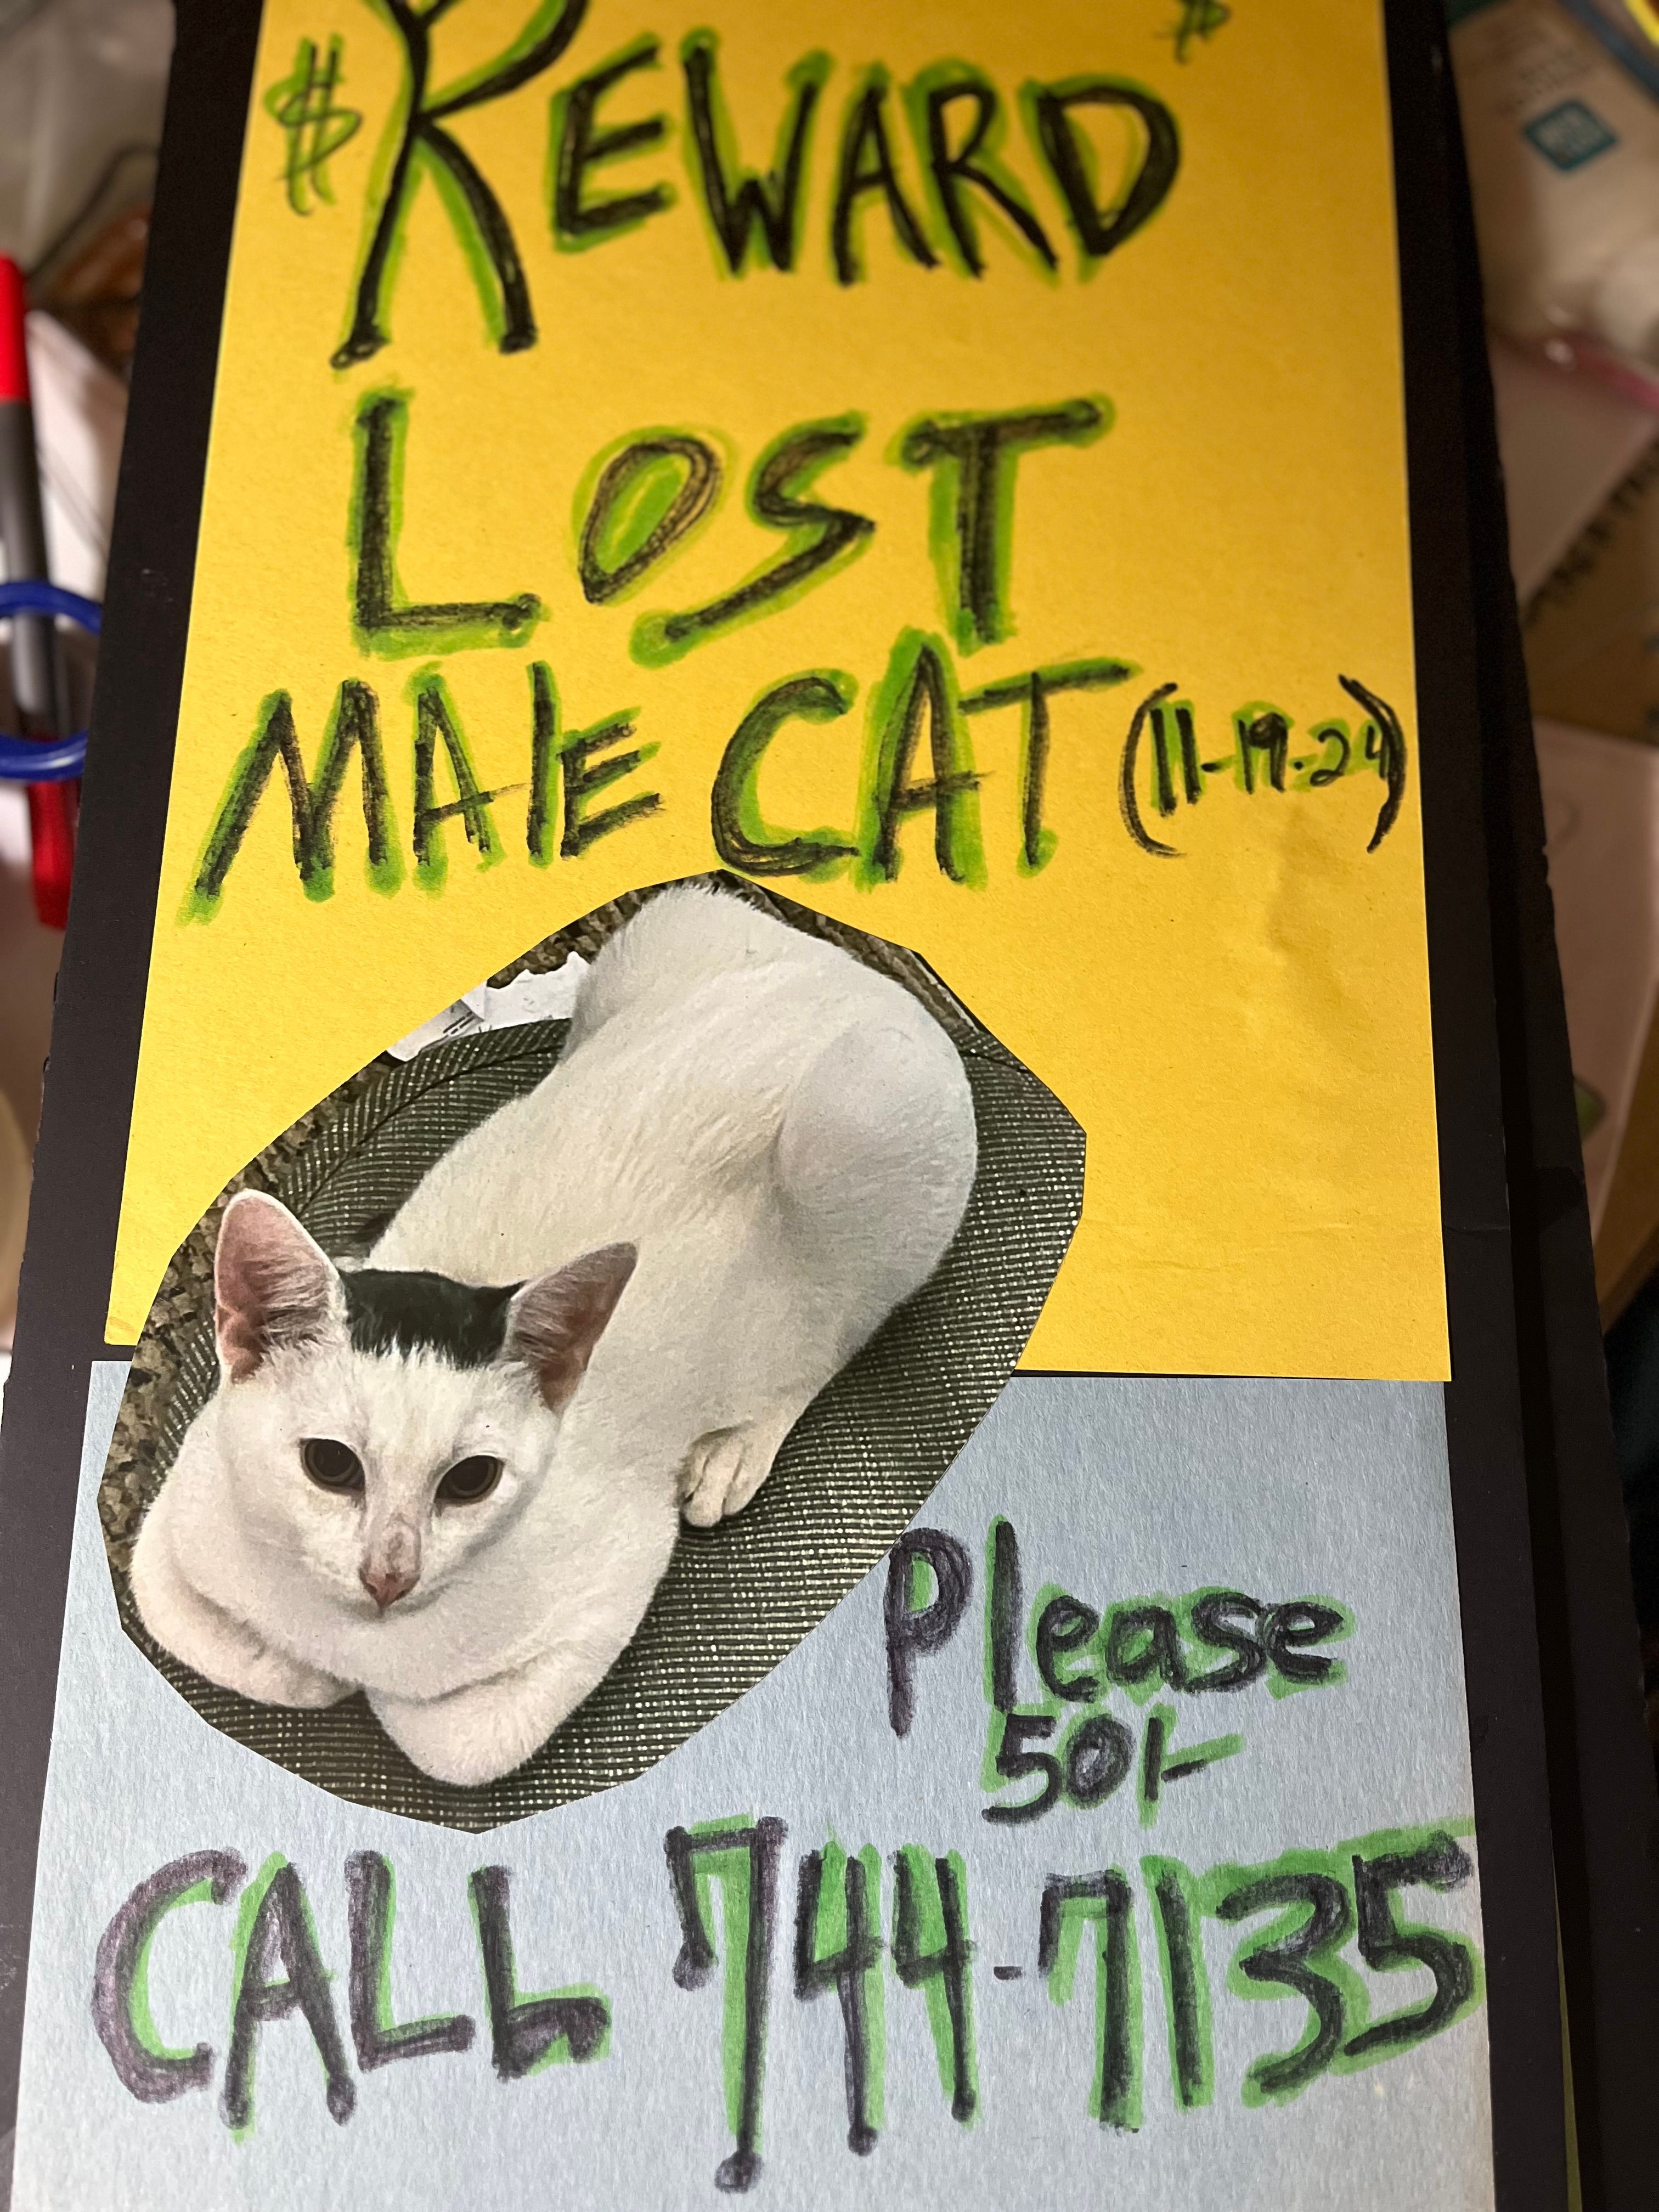 $ REWARD $
LOST
MALE CAT (11-19-24)
Please
501-
CALL 744-7135